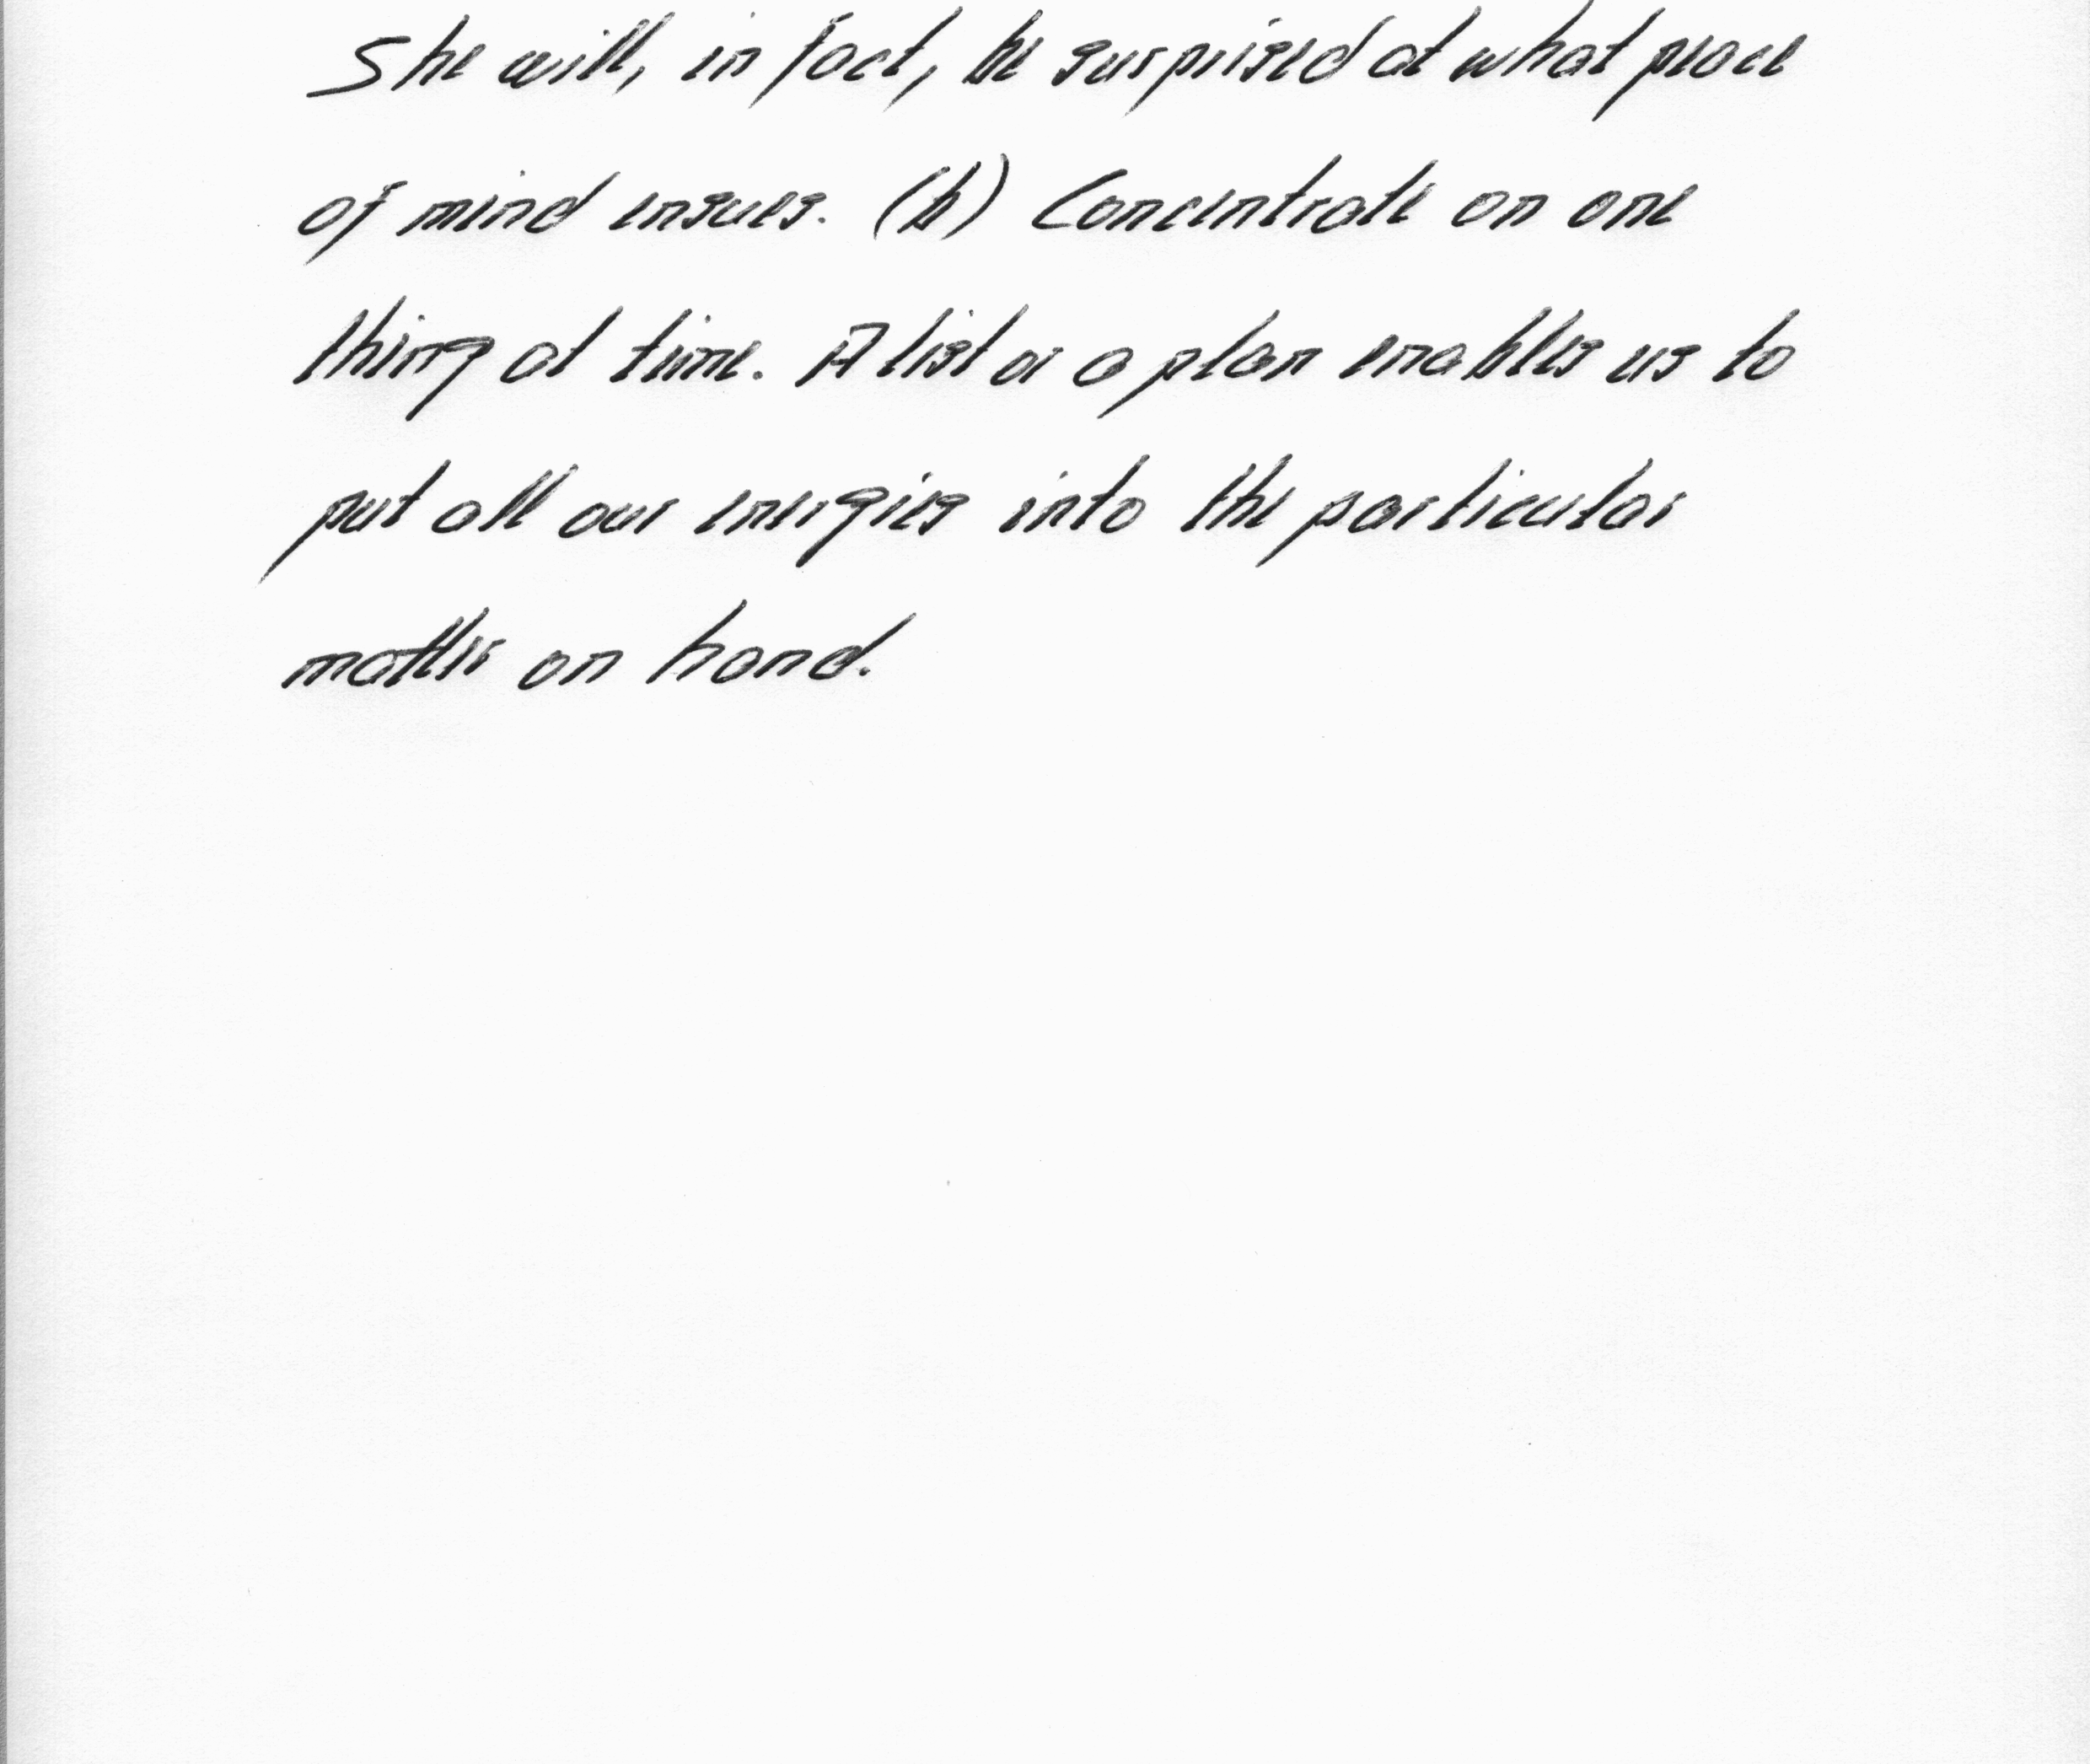 She will, in fact, be surprised at what peace
of mind ensues. (b) Concentrate on one
thing at time. A list or a plan enables us to
put all our energies into the particular
matter on hand.